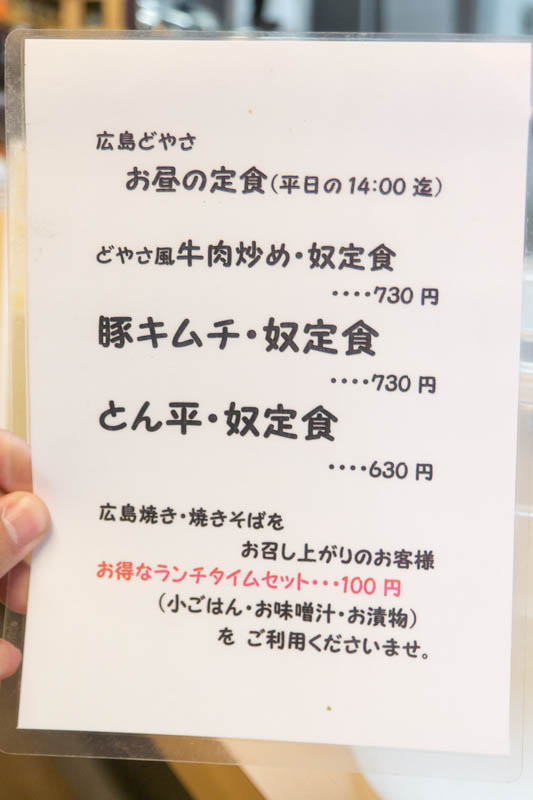 広島どやさ
お昼の定食(平日の14:00 迄)
どやさ風牛肉炒め・奴定食
････730 円
豚キムチ・奴定食
････730 円
とん平・奴定食
････630 円
広島焼き・焼きそばを
お召し上がりのお客様
お得なランチタイムセット・・・100 円
(小ごはん・お味噌汁・お漬物)
を ご利用くださいませ。